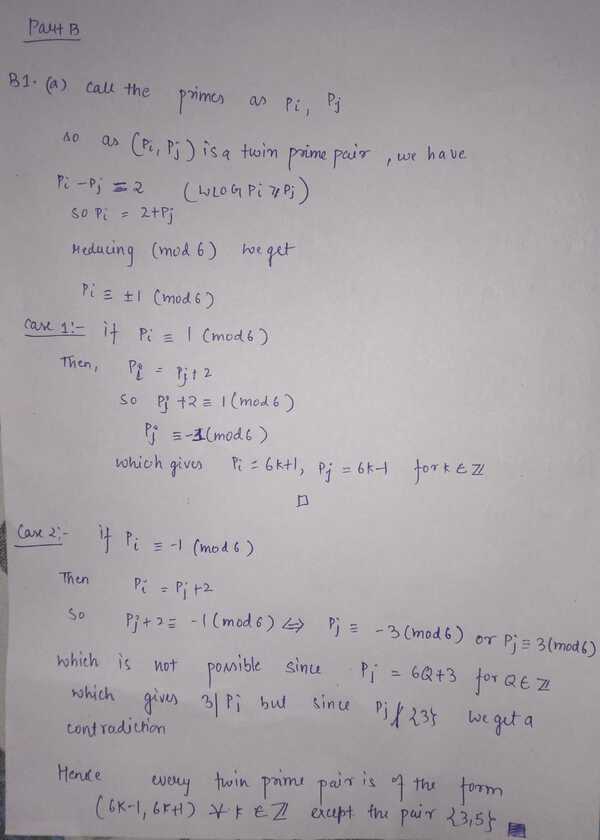 Part B
B1. (a) call the primes as Pi, Pj
so as (Pi, Pj) is a twin prime pair, we have
Pi - Pj = 2 (WLOG Pi ≥ Pj)
so Pi = 2+Pj
reducing (mod 6) we get
Pi ≡ ±1 (mod 6)
Case 1:- if Pi ≡ 1 (mod 6)
Then, Pi = Pj + 2
so Pj + 2 ≡ 1 (mod 6)
Pj ≡ -1 (mod 6)
which gives Pi = 6k+1, Pj = 6k-1 for k ∈ ℤ
□
Case 2:- if Pi ≡ -1 (mod 6)
Then Pi = Pj + 2
So Pj + 2 ≡ -1 (mod 6) ⟺ Pj ≡ -3 (mod 6) or Pj ≡ 3 (mod 6)
which is not possible since Pj = 6Q+3 for Q ∈ ℤ
which gives 3|Pj but since Pj ∉ {3} we get a
contradiction
Hence every twin prime pair is of the form
(6k-1, 6k+1) ∀ k ∈ ℤ except the pair {3,5} ■